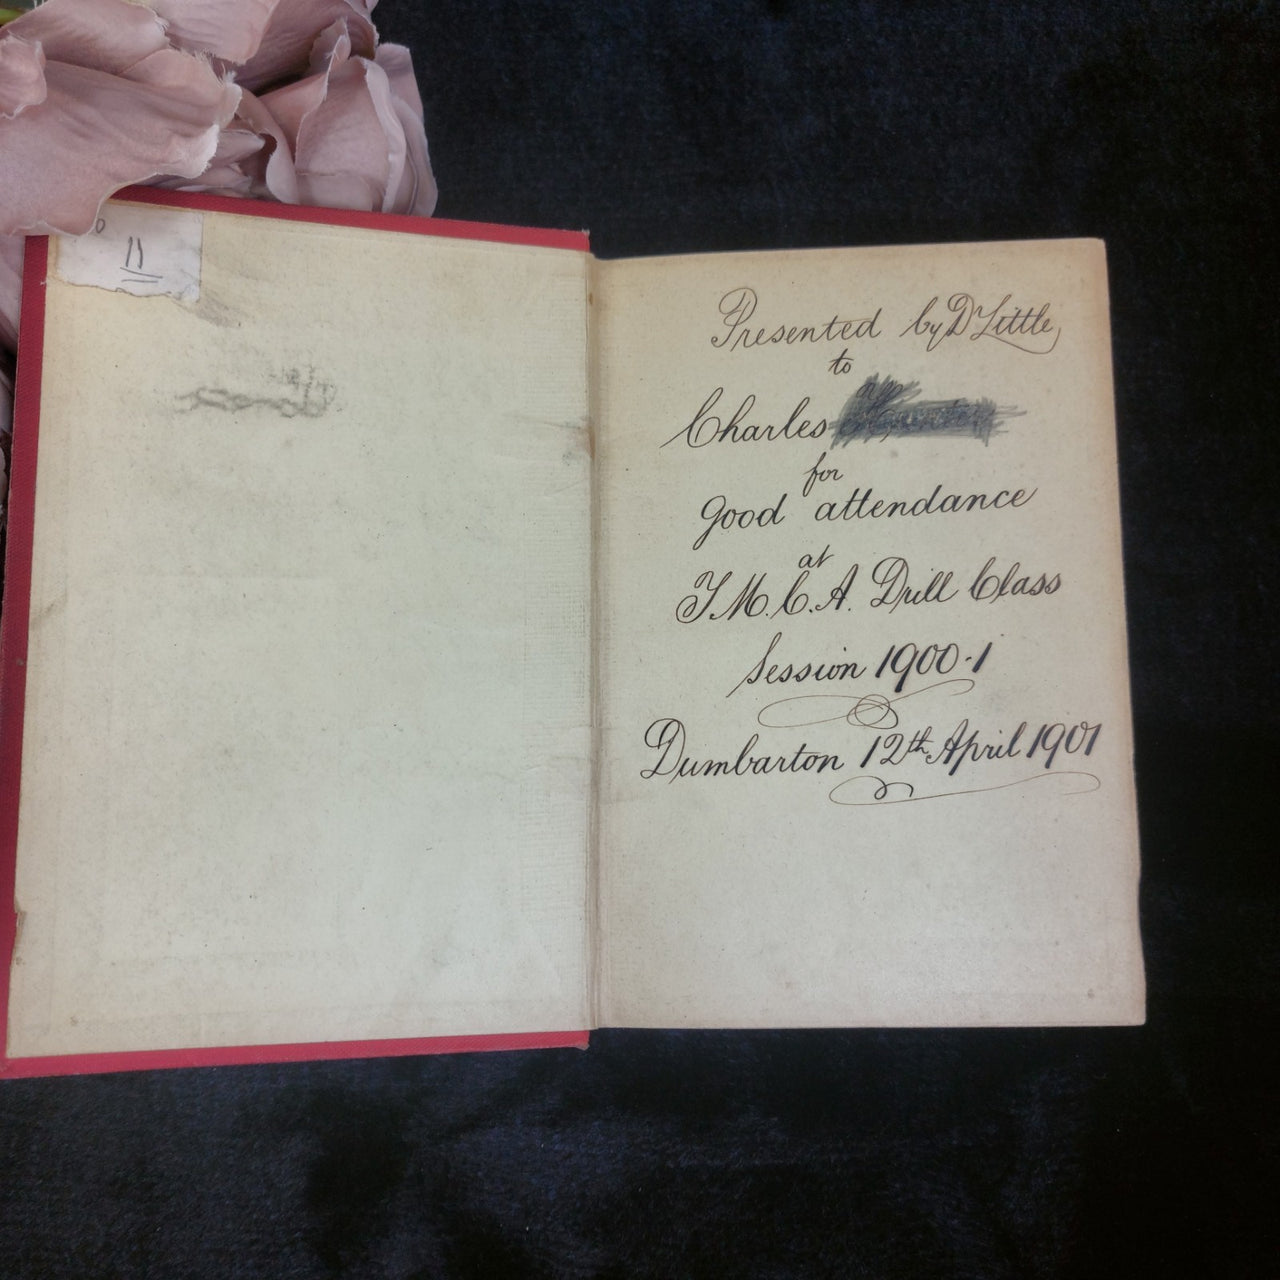 11
Presented by D Little
to
Charles
for
good attendance
at
Y.M.C.A. Drill Class
Session 1900-1
Dumbarton 12th April 1901